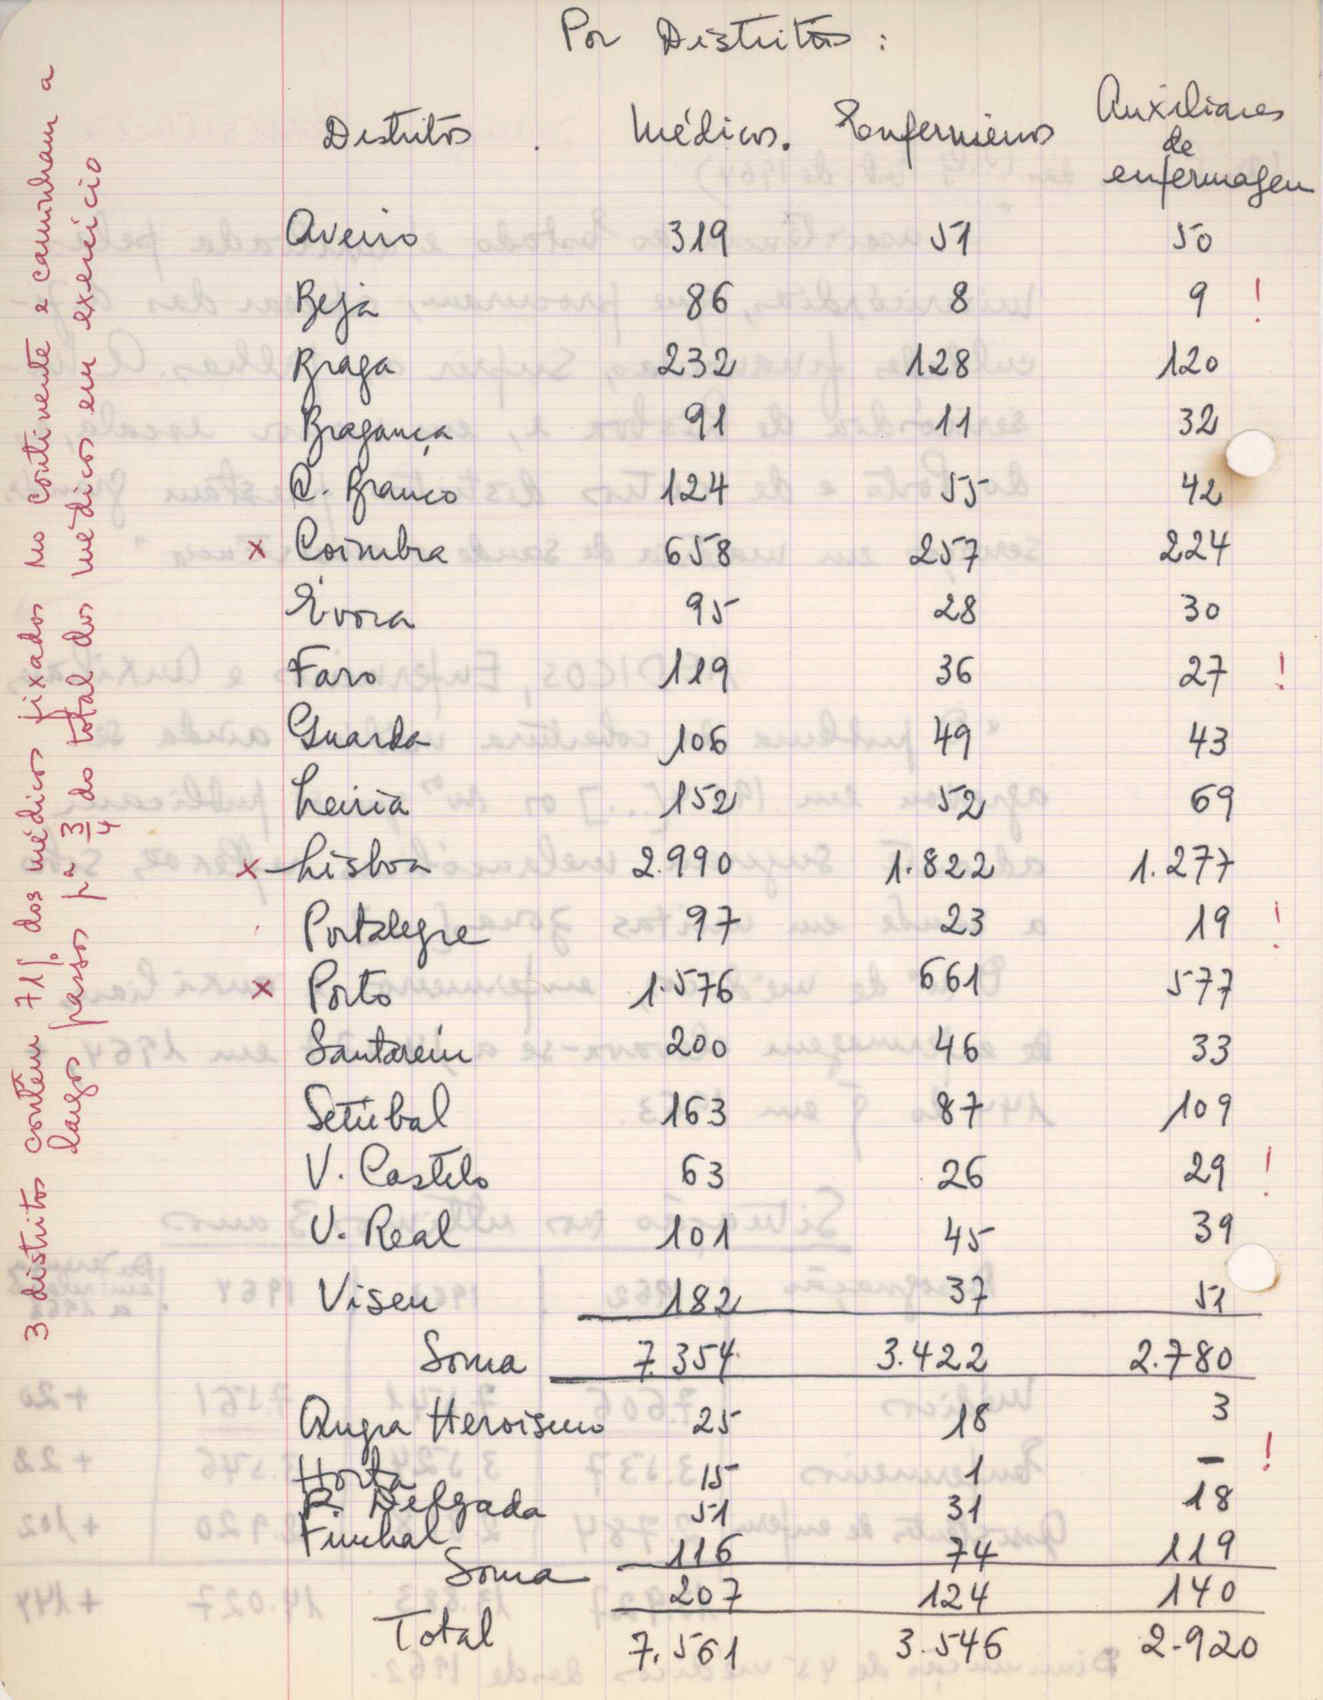 Por Distritos :
Distritos . Médicos. Enfermeiros Auxiliares
de
enfermagem
Aveiro 319 51 50
Beja 86 8 9 !
Braga 232 128 120
Bragança 91 11 32
C. Branco 124 55 42
x Coimbra 658 257 224
Évora 95 28 30
Faro 119 36 27 !
Guarda 106 49 43
Leiria 152 52 69
x Lisboa 2.990 1.822 1.277
Portalegre 97 23 19 !
x Porto 1.576 661 577
Santarém 200 46 33
Setúbal 163 87 109
V. Castelo 63 26 29 !
V. Real 101 45 39
Viseu 182 37 51
Soma 7.354 3.422 2.780
Angra Heroismo 25 18 3
Horta 15 1 - !
P. Delgada 51 31 18
Funchal 116 74 119
Soma 207 124 140
Total 7.561 3.546 2.920
3 distritos contêm 71% dos médicos fixados no continente e caminham a
largos passos pa 3/4 do total dos médicos em exercício